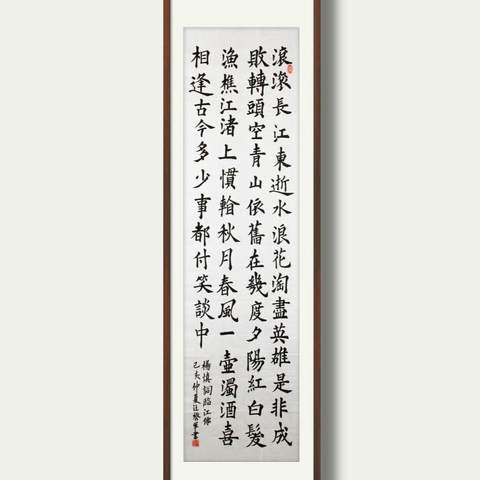 滾滾長江東逝水浪花淘盡英雄是非成
敗轉頭空青山依舊在幾度夕陽紅白髮
漁樵江渚上慣看秋月春風一壺濁酒喜
相逢古今多少事都付笑談中
楊慎詞臨江僊
己亥仲夏汪書